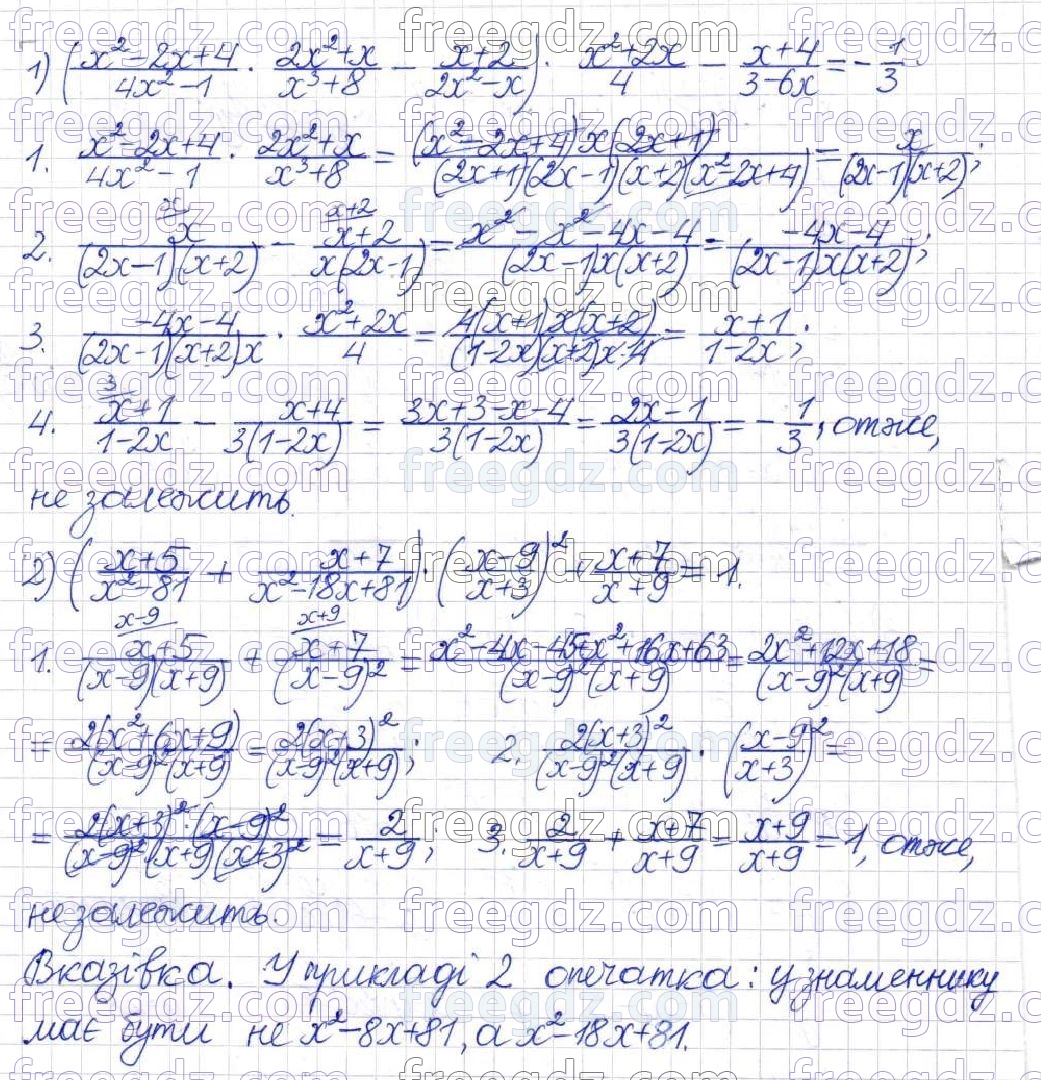 1) ((x²-2x+4)/(4x²-1) · (2x²+x)/(x³+8) - (x+2)/(2x²-x)) · (x²+2x)/4 - (x+4)/(3-6x) = -1/3
1. (x²-2x+4)/(4x²-1) · (2x²+x)/(x³+8) = ((x²-2x+4)x(2x+1))/((2x+1)(2x-1)(x+2)(x²-2x+4)) = x/((2x-1)(x+2));
2. x/((2x-1)(x+2)) - (x+2)/(x(2x-1)) = (x²-x²-4x-4)/((2x-1)x(x+2)) = (-4x-4)/((2x-1)x(x+2));
3. (-4x-4)/((2x-1)(x+2)x) · (x²+2x)/4 = (4(x+1)x(x+2))/((1-2x)(x+2)x·4) = (x+1)/(1-2x);
4. (x+1)/(1-2x) - (x+4)/(3(1-2x)) = (3x+3-x-4)/(3(1-2x)) = (2x-1)/(3(1-2x)) = -1/3, отже,
не залежить.
2) ((x+5)/(x²-81) + (x+7)/(x²-18x+81)) · ((x-9)/(x+3))² + (x+7)/(x+9) = 1.
1. (x+5)/((x-9)(x+9)) + (x+7)/(x-9)² = (x²-4x-45+x²+16x+63)/((x-9)²(x+9)) = (2x²+12x+18)/((x-9)²(x+9)) =
= 2(x²+6x+9)/((x-9)²(x+9)) = 2(x+3)²/((x-9)²(x+9)); 2. 2(x+3)²/((x-9)²(x+9)) · ((x-9)/(x+3))² =
= (2(x+3)²·(x-9)²)/((x-9)²(x+9)(x+3)²) = 2/(x+9); 3. 2/(x+9) + (x+7)/(x+9) = (x+9)/(x+9) = 1, отже,
не залежить.
Вказівка. У прикладі 2 опечатка: у знаменнику
має бути не x²-8x+81, а x²-18x+81.